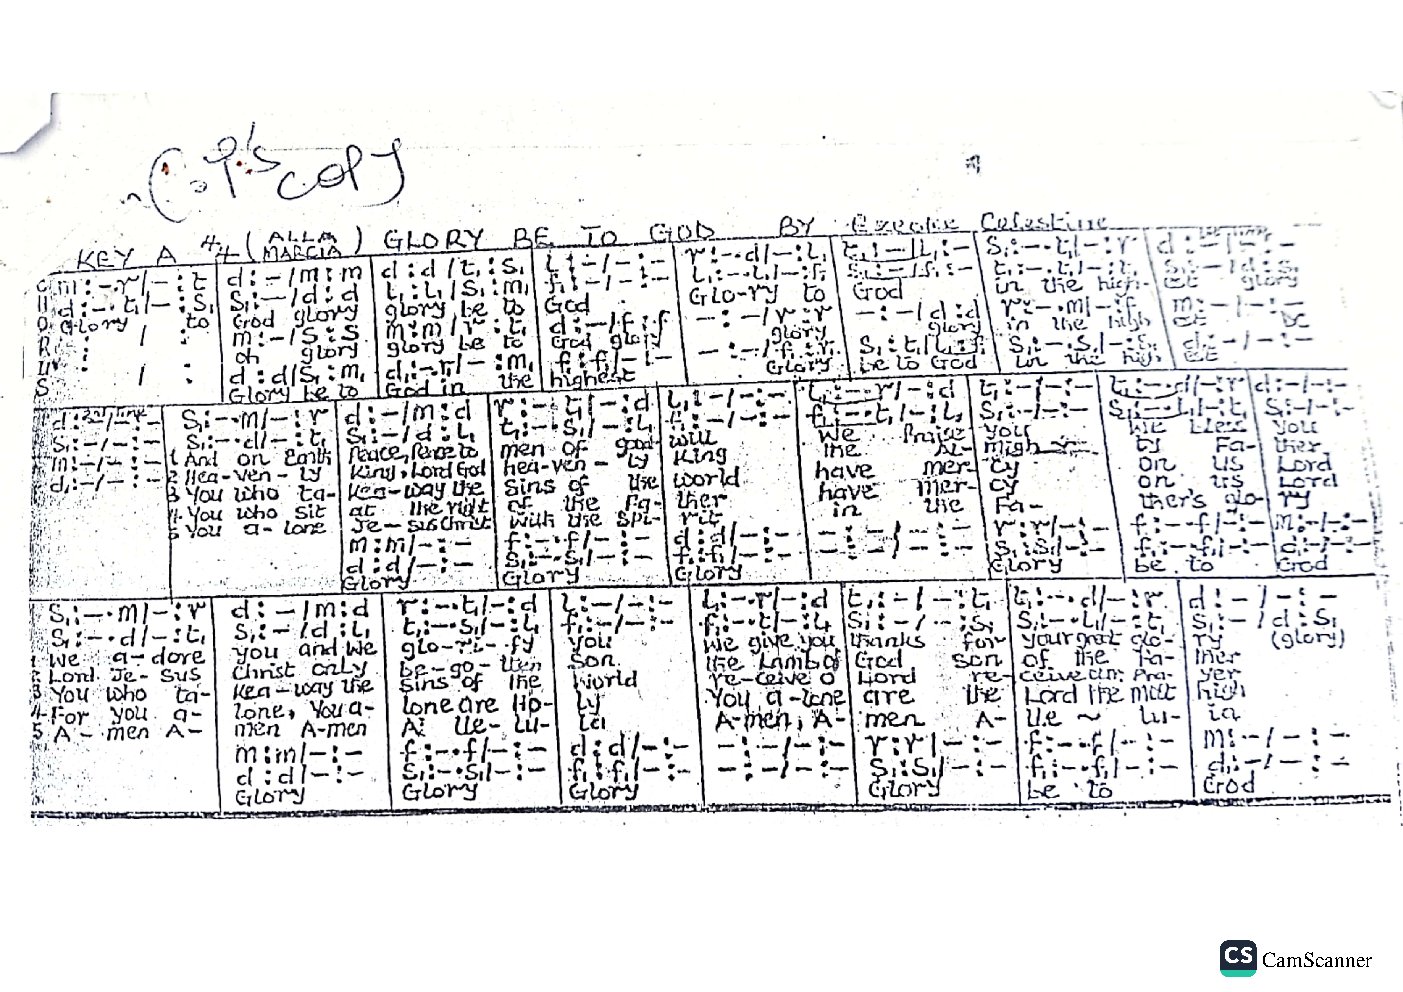 copy
KEY A 4/4 (ALLA MARCIA) GLORY BE TO GOD BY Celestine
m:-.r/-:t d:-/m:m d:d/t₁:s₁ l₁:-/-:- r:-.d/-:l₁ t₁:-/l₁:- s₁:-.t₁/-:r d:-/-:-
d:-.t₁/-:s₁ s₁:-/d:d l₁:l₁/s₁:m₁ f₁:-/-:- l₁:-.l₁/-:f₁ s₁:-/f₁:- t₁:-.t₁/-:t₁ s₁:-/d:s₁
Glory to God glory glory be to God Glo-ry to God in the high- est glory
m:-/s:s m:m/r:t₁ d:-/f:f -:-/r:r -:-/d:d r:-.m/-:f m:-/-:-
oh glory glory be to God glory glory glory in the high est
d:d/s₁:m₁ d:-.r/-:m₁ f₁:f₁/-:- -:-/f₁:r₁ s₁:t₁/l₁:f₁ s₁:-.s₁/-:s₁ d:-/-:-
Glory be to God in the highest Glory be to God in the high est
d:2nd time s₁:-.m/-:r d:-/m:d r:-.t₁/-:d l₁:-/-:- l₁:-.r/-:d t₁:-/-:- t₁:-.d/-:r d:-/-:-
s₁:-/-:- s₁:-.d/-:t₁ s₁:-/d:l₁ t₁:-.s₁/-:l₁ f₁:-/-:- f₁:-.t₁/-:l₁ s₁:-/-:- s₁:-.l₁/-:t₁ s₁:-/-:-
m:-/-:- 1 And on Earth Peace, Peace to men of good will We Praise you We bless you
d₁:-/-:- 2 Hea-ven-ly King, Lord God hea-ven-ly King the Al- migh- ty Fa- ther,
3 You who ta- kea-way the sins of the world have mer- cy on us Lord
4 You who sit at the right of the Fa- ther have mer- cy on us Lord
5 You a-lone Je-sus Christ with the Spi- rit in the Fa- ther's glo- ry
m:m/-:- f:-.f/-:- d:d/-:- -:-/-:- r:r/-:- f:-.f/-:- m:-/-:-
d:d/-:- s₁:-.s₁/-:- f₁:f₁/-:- s₁:s₁/-:- f₁:-.f₁/-:- d₁:-/-:-
Glory Glory Glory Glory be to God
s₁:-.m/-:r d:-/m:d r:-.t₁/-:d l₁:-/-:- l₁:-.r/-:d t₁:-/-:t₁ t₁:-.d/-:r d:-/-:-
s₁:-.d/-:t₁ s₁:-/d:l₁ t₁:-.s₁/-:l₁ f₁:-/-:- f₁:-.t₁/-:l₁ s₁:-/-:s₁ s₁:-.l₁/-:t₁ s₁:-/d:s₁
1 We a-dore you and We glo-ri-fy you We give you thanks for your great glo- ry (glory)
2 Lord Je-sus Christ only be-go-tten Son the Lamb of God son of the Fa- ther
3 You who ta- kea-way the sins of the World re-ceive O Lord re- ceive our Pra- yer
4 For you a- lone, You a- lone are Ho- ly You a-lone are the Lord the Most high
5 A-men A- men A-men Al lle-lu- ia A-men, A- men A- lle ~ lu- ia
m:m/-:- f:-.f/-:- d:d/-:- -:-/-:- r:r/-:- f:-.f/-:- m:-/-:-
d:d/-:- s₁:-.s₁/-:- f₁:f₁/-:- -:-/-:- s₁:s₁/-:- f₁:-.f₁/-:- d₁:-/-:-
Glory Glory Glory Glory be to God
CS CamScanner